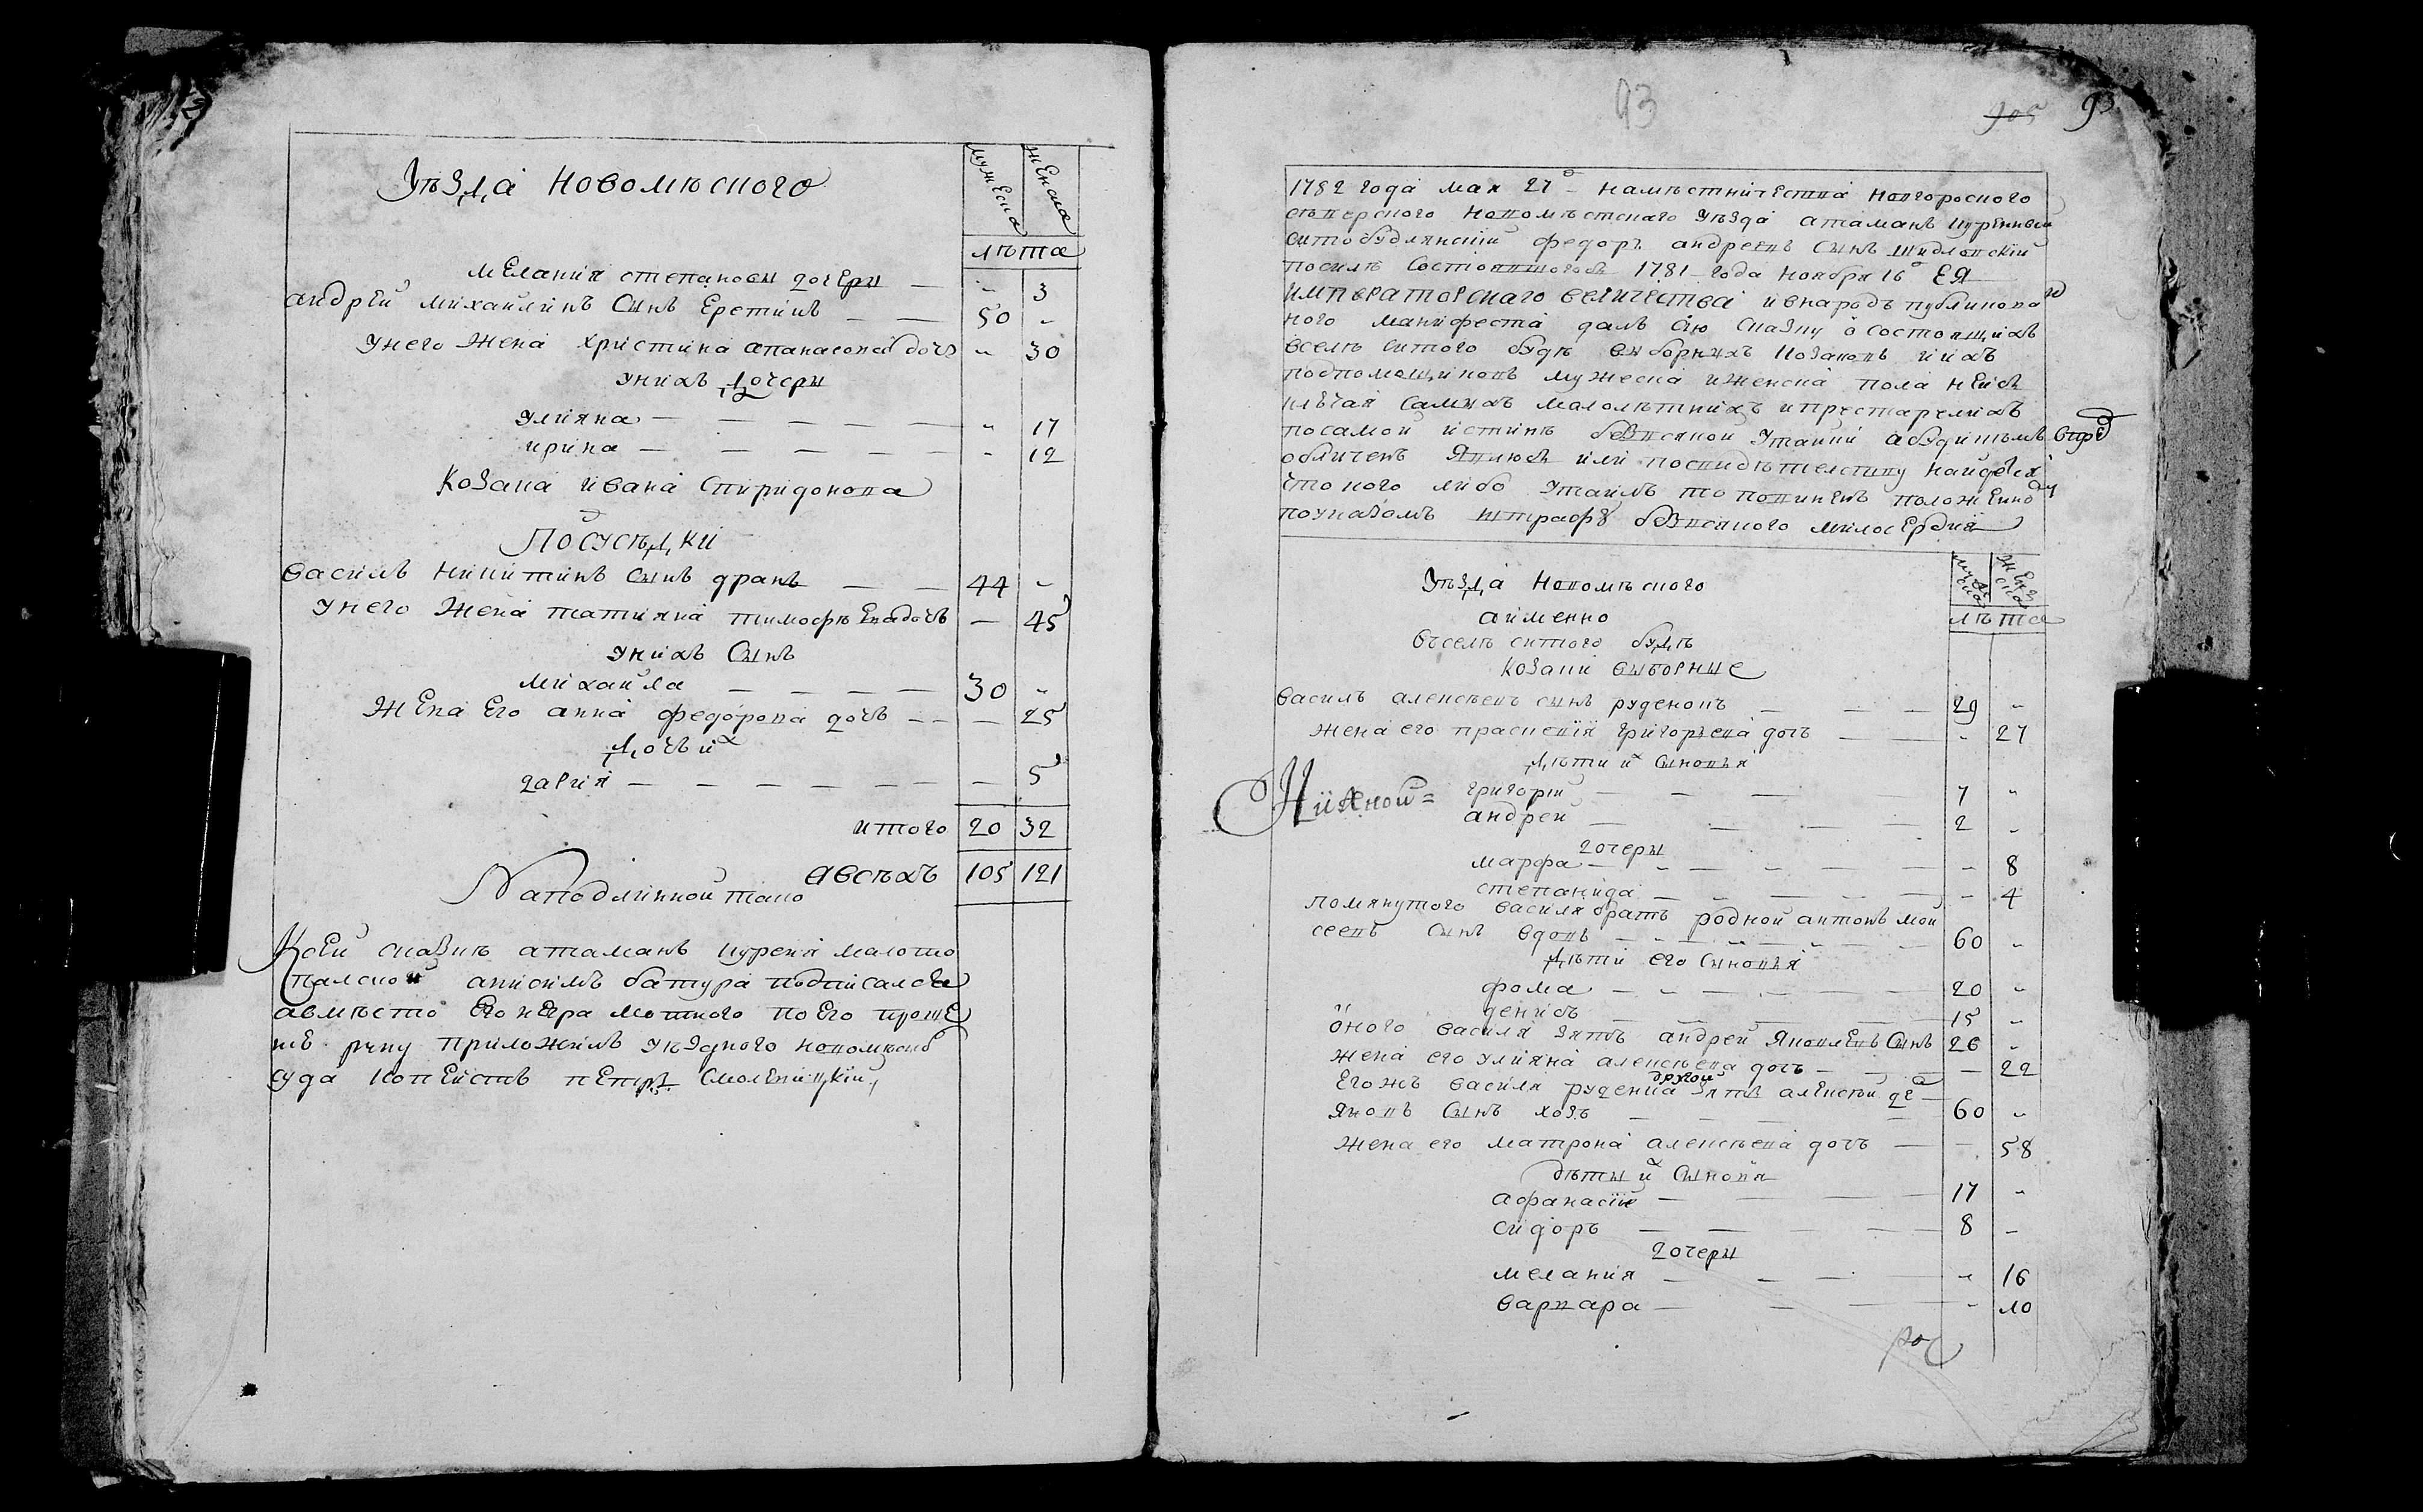 Уѣзда новомѣского
мужеска женска
лѣта
мелания степановы дочеры — „ 3
андрей михайлинъ сынъ еретикъ — — 50 „
унего жена христина апанасова дочь „ 30
унихъ дочеры
улияна — — — — — „ 17
ирина — — — — — — „ 12
козака ивана спиридонова
подсусѣдки
василъ никитинъ сынъ дранъ — — 44 „
унего жена татияна тимофѣева дочь — 45
унихъ сынъ
михайла — — — — 30 „
жена его анна федорова дочь — — — 25
дочь их
дария — — — — — — — 5
итого 20 32
авсѣхъ 105 121
Наподлинной тако
Ксей сказкѣ атаманъ куреня малото
палской анисимъ батура подписался
авмѣсто его негра мотного по его проше
нию руку приложилъ уѣздного новомѣско
суда копеистъ петръ смоленицкий
93
905 93
1782 года мая 27 намѣстничества новгороского
сѣверского новомѣстскаго уѣзда атаманъ куренный
ситобудлянский федоръ андреевъ сынъ шидловский
посилѣ состоявшогося 1781 года ноября 16 ЕЯ
императорскаго величества ивнародъ публикова
ного манифеста далъ сию сказку о состоящихъ
вселѣ ситого будѣ выборныхъ козаковъ и ихъ
подпомощниковъ мужеска иженска пола неис
ключая самыхъ малолѣтнихъ ипрестарелихъ
посамой истинѣ безвсякой утайки абуди кѣмъ впред
обличенъ явлюсь или посвидѣтелству найдется
что кого либо утаилъ то повиненъ положенно
поуказомъ штрафу безвсякого милосердия
Уѣзда новомѣского
аименно
вселѣ ситого будѣ
козаки выборные
мужеска женска
лѣта
василъ алексѣевъ сынъ руденокъ — — — 29 „
жена его прасковия григорьева дочь — — „ 27
дѣти их сыновья
григорий — — — — 7 „
андрей — — — — 2 „
дочеры
марфа — — — — — „ 8
степанида — — — — — 4
помянутого василя братъ родной антонъ мои
сеевъ сынъ вдовъ — — — — — — 60 „
дѣти его сыновья
фома — — — — — 20 „
денисъ — — — — 15 „
оного василя зять андрей яковлевъ сынъ 26 „
жена его улияна алексѣева дочь — — — 22
его жъ василя руденка другой зять алексѣй де
яковъ сынъ хозъ — — — 60 „
жена его матрона алексѣева дочь — — 58
дѣты их сыновя
афанасий — — — 17 „
сидоръ — — — 8 —
дочеры
мелания — — — „ 16
варвара — — — „ 10